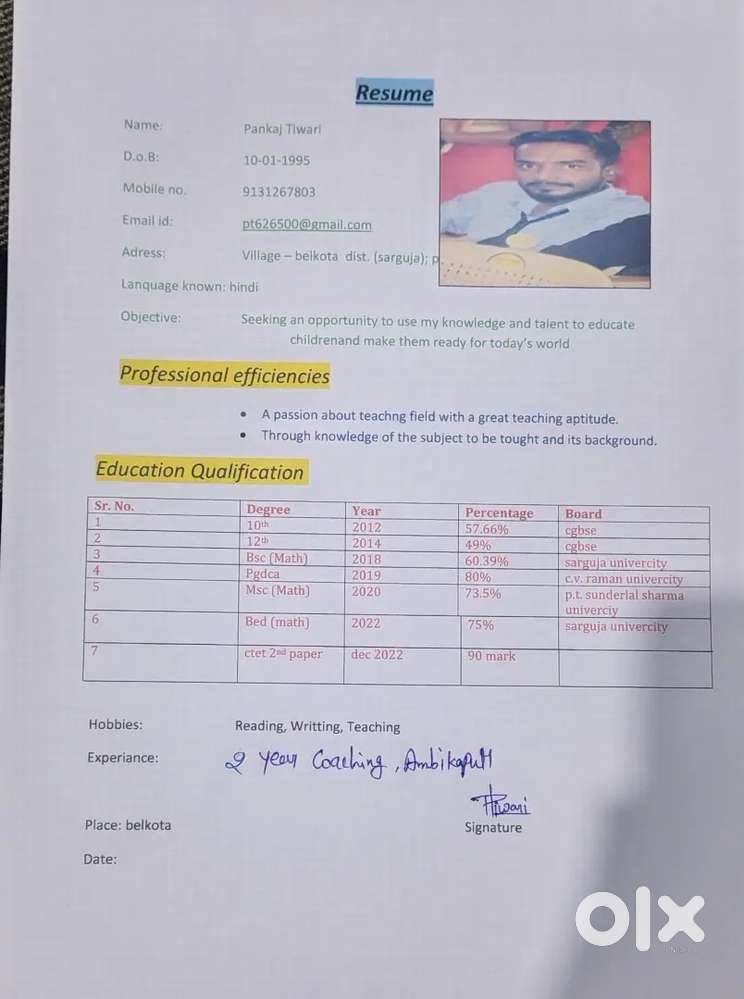 Resume
Name: Pankaj Tiwari
D.o.B: 10-01-1995
Mobile no. 9131267803
Email id: pt626500@gmail.com
Adress: Village – belkota dist. (sarguja); p
Lanquage known: hindi
Objective: Seeking an opportunity to use my knowledge and talent to educate
childrenand make them ready for today's world
Professional efficiencies
• A passion about teachng field with a great teaching aptitude.
• Through knowledge of the subject to be tought and its background.
Education Qualification
Sr. No. Degree Year Percentage Board
1 10th 2012 57.66% cgbse
2 12th 2014 49% cgbse
3 Bsc (Math) 2018 60.39% sarguja univercity
4 Pgdca 2019 80% c.v. raman univercity
5 Msc (Math) 2020 73.5% p.t. sunderlal sharma
univerciy
6 Bed (math) 2022 75% sarguja univercity
7 ctet 2nd paper dec 2022 90 mark
Hobbies: Reading, Writting, Teaching
Experiance: 2 year Coaching, Ambikapur
PTiwari
Place: belkota Signature
Date:
olx